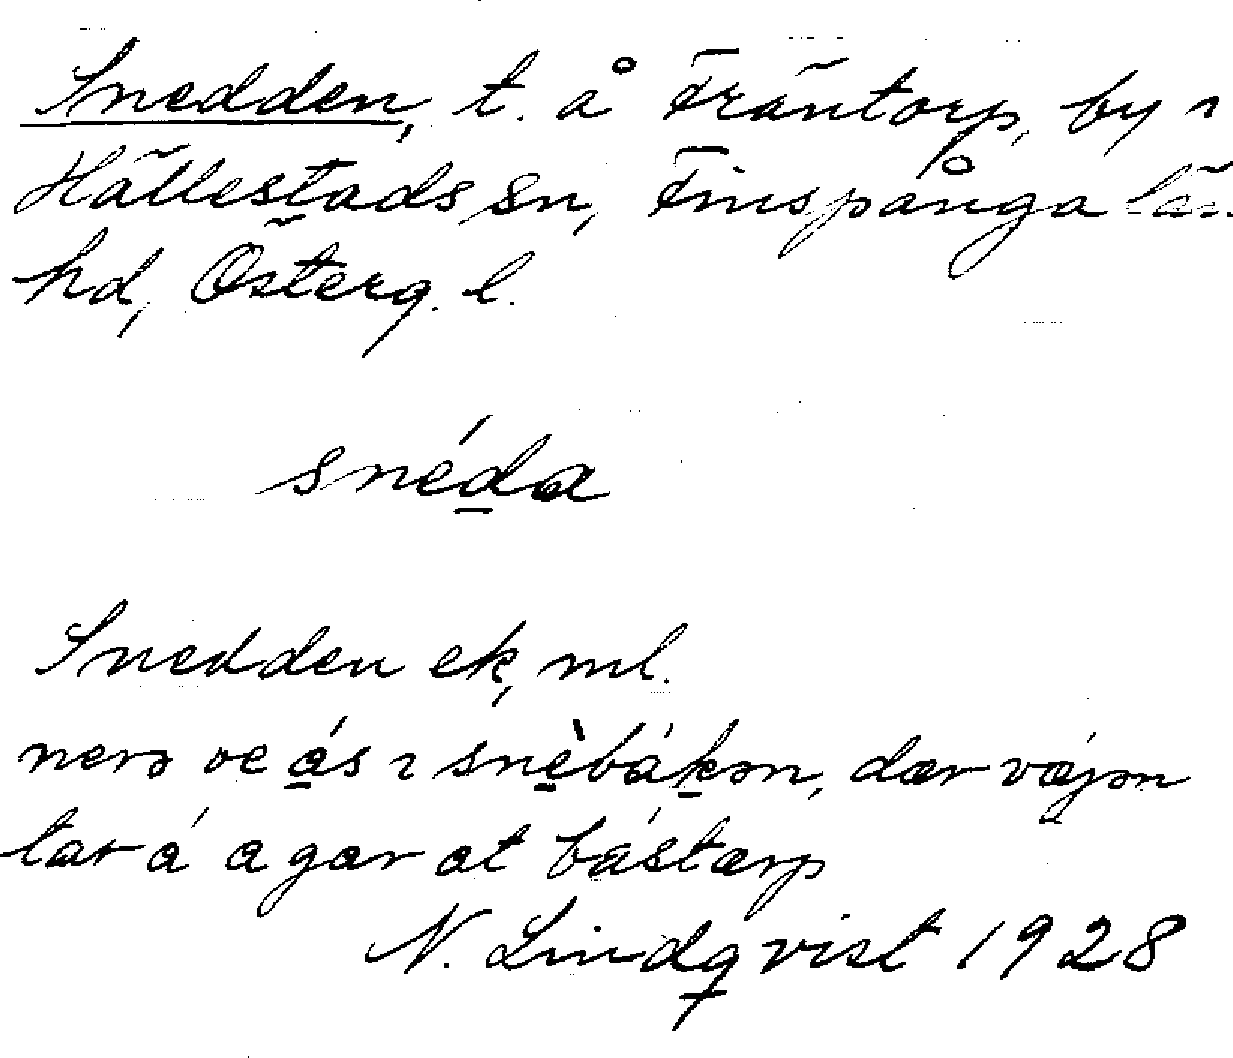 Snedden, t. å Fräntorp, by i
Hällestads sn, Finspånga län.
hd, Österg. l.
snéda
Snedden ek, ml.
nerə ve ás i snèbákən, dær væjən
tar á a gær at bástærp
N. Lindqvist 1928